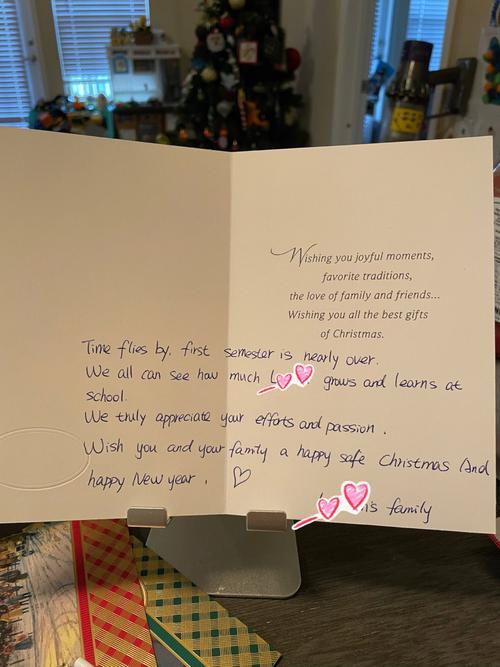 Wishing you joyful moments,
favorite traditions,
the love of family and friends...
Wishing you all the best gifts
of Christmas.
Time flies by. first semester is nearly over.
We all can see how much grows and learns at
school.
We truly appreciate your efforts and passion.
Wish you and your family a happy safe Christmas And
happy New year.
family